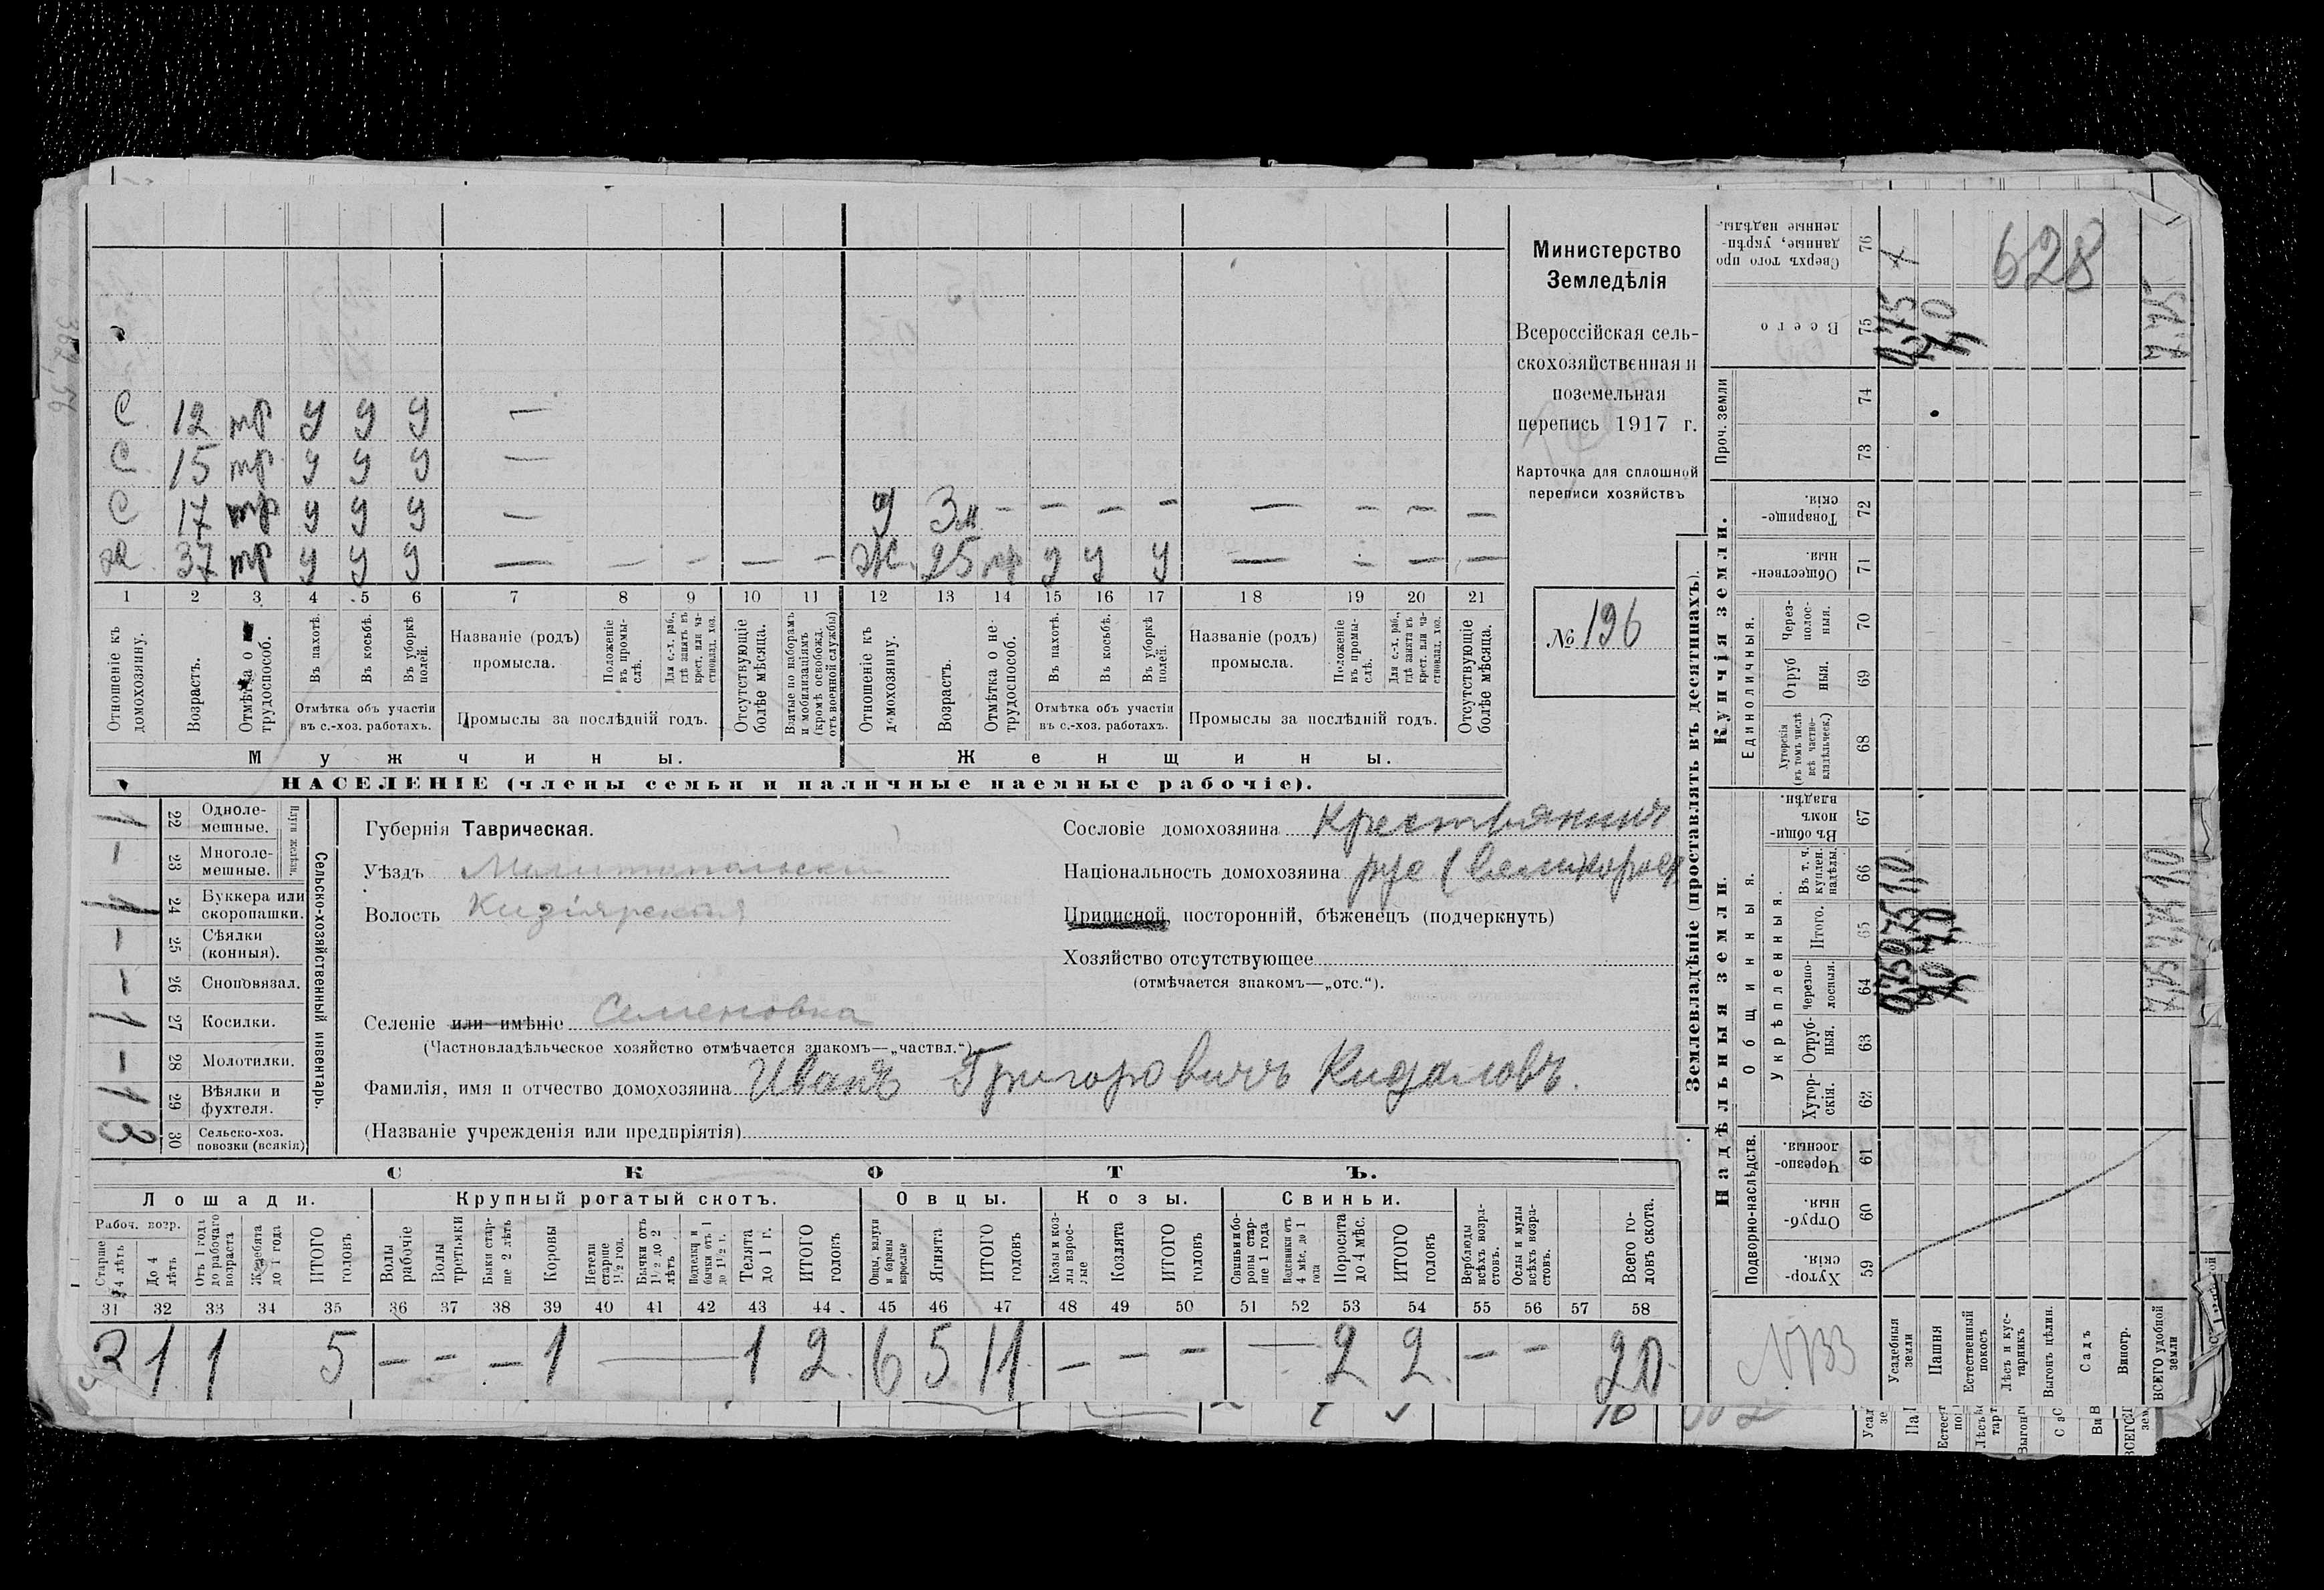 С 12 тр У У У —
С 15 тр У У У —
С 17 тр У У У — У 3 м. – – – – — – – –
Ж 37 тр У У У — – – – – Ж. 25 тр У У У — – – –
1 2 3 4 5 6 7 8 9 10 11 12 13 14 15 16 17 18 19 20 21
Отношеніе къ домохозяину.
Возрастъ.
Отмѣтка о не трудоспособ.
Въ пахотѣ.
Въ косьбѣ.
Въ уборкѣ полей.
Отмѣтка объ участіи въ с.-хоз. работахъ.
Названіе (родъ) промысла.
Положеніе въ промыслѣ.
Для с.-х. раб., гдѣ занятъ въ крест. или частновлад. хоз.
Промыслы за послѣдній годъ.
Отсутствующіе болѣе мѣсяца.
Взятые по наборамъ и мобилизаціямъ (кромѣ освобожд. отъ военной службы)
Отношеніе къ домохозяину.
Возрастъ.
Отмѣтка о не трудоспособ.
Въ пахотѣ.
Въ косьбѣ.
Въ уборкѣ полей.
Отмѣтка объ участіи въ с.-хоз. работахъ.
Названіе (родъ) промысла.
Положеніе въ промыслѣ.
Для с.-х. раб., гдѣ занята въ крест. или частновлад. хоз.
Промыслы за послѣдній годъ.
Отсутствующіе болѣе мѣсяца.
Мужчины. Женщины.
НАСЕЛЕНІЕ (члены семьи и наличные наемные рабочіе).
Министерство
Земледѣлія
Всероссійская сель-
скохозяйственная и
поземельная
перепись 1917 г.
Карточка для сплошной
переписи хозяйствъ
№ 196
1 22 Одноле-мешные.
– 23 Многоле-мешные.
1 24 Буккера или скоропашки.
– 25 Сѣялки (конныя).
– 26 Сноповязал.
1 27 Косилки.
– 28 Молотилки.
1 29 Вѣялки и фухтеля.
3 30 Сельско-хоз. повозки (всякія)
Сельско-хозяйственный инвентарь.
Губернія Таврическая.
Уѣздъ Мелитопольскій
Волость Кизіярская
Сословіе домохозяина Крестьянинъ
Національность домохозяина рус (великоросъ
Приписной, посторонній, бѣженецъ (подчеркнуть)
Хозяйство отсутствующее
(отмѣчается знакомъ—„отс.“).
Селеніе или имѣніе Семеновка
(Частновладѣльческое хозяйство отмѣчается знакомъ—„частвл.“)
Фамилія, имя и отчество домохозяина Иванъ Григоровичъ Кидаловъ.
(Названіе учрежденія или предпріятія)
СКОТЪ.
Лошади. Крупный рогатый скотъ. Овцы. Козы. Свиньи.
Рабоч. возр.
Старше 4 лѣтъ
До 4 лѣтъ
Отъ 1 года до рабочаго возраста
Жеребята до 1 года
ИТОГО головъ
Волы рабочіе
Волы третьяки
Быки старше 2 лѣтъ
Коровы
Нетели старше 1½ год.
Бычки отъ 1½ до 2 лѣтъ
Телята до 1 г.
ИТОГО головъ
Овцы, валухи и бараны взрослые
Ягнята
ИТОГО головъ
Козы и козлы взрослые
Козлята
ИТОГО головъ
Свиньи и боровы старше 1 года
Подсвинки отъ 4 мѣс. до 1 года
Поросята до 4 мѣс.
ИТОГО головъ
Верблюды всѣхъ возрастовъ.
Ослы и мулы всѣхъ возрастовъ.
Всего головъ скота.
31 32 33 34 35 36 37 38 39 40 41 42 43 44 45 46 47 48 49 50 51 52 53 54 55 56 57 58
3 1 1 5 – – – 1 — 1 2 6 5 11 – – – — 2 2 – – 20
Землевладѣніе (проставлять въ десятинахъ).
Купчія земли.
Надѣльныя земли.
Единоличныя.
Общинныя.
Укрѣпленныя.
Подворно-наслѣдств.
Проч. земли
Сверхъ того проданные, укрѣпленные надѣлы.
76
Всего
75
74
73
Товарищескія.
72
Общественныя.
71
Черезполосныя.
70
Отрубныя.
69
Хуторскія (въ томъ числѣ всѣ частновладѣльческ.)
68
Въ общинномъ владѣн.
67
Въ т. ч. куплен. надѣлы.
66
Итого.
65
Черезполосныя.
64
Отрубныя.
63
Хуторскія.
62
Черезполосныя.
61
Отрубныя.
60
Хуторскія.
59
628
Усадебныя земли
Пашня
Естественный покосъ
Лѣсъ и кустарникъ
Выгонъ цѣлин.
Садъ
Виногр.
ВСЕГО удобной земли